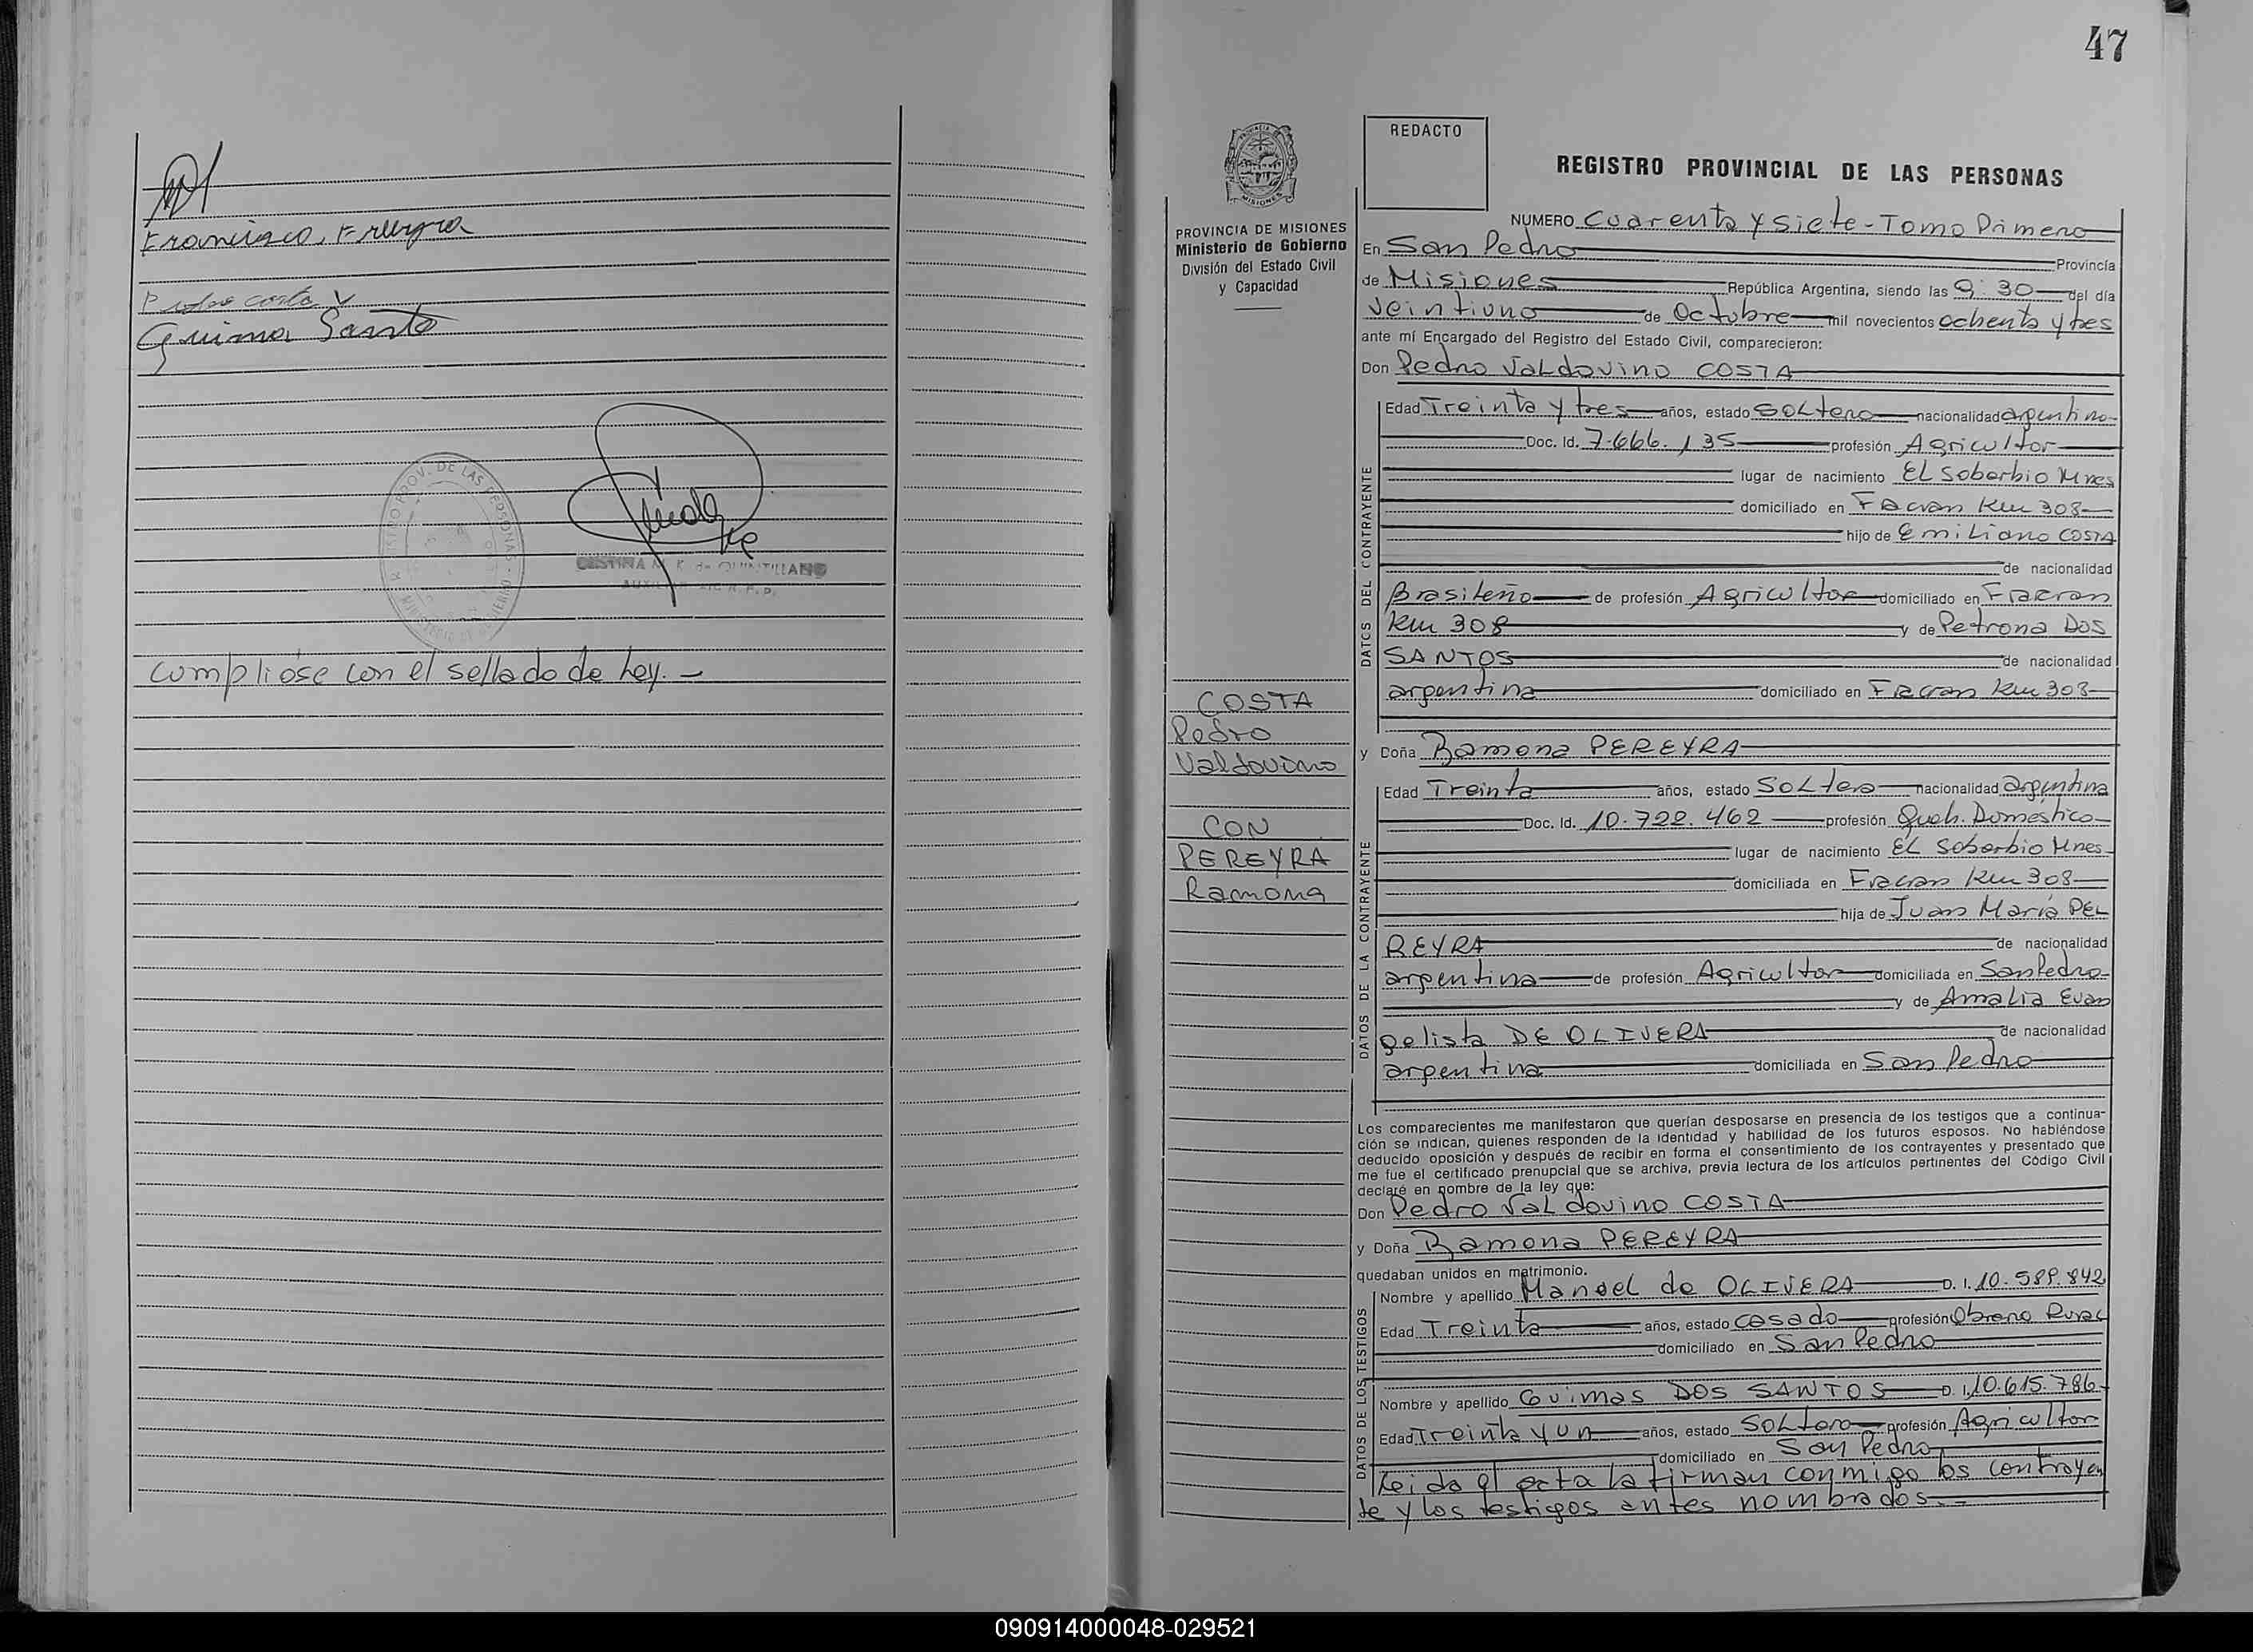 Pedro Costa V
Guima Santo
REGISTRO PROV. DE LAS PERSONAS
CRISTINA M. K. de QUINTILLANO
Cumplióse con el sellado de Ley. -
47
REDACTO
MISIONES
REGISTRO PROVINCIAL DE LAS PERSONAS
PROVINCIA DE MISIONES
Ministerio de Gobierno
División del Estado Civil
y Capacidad
COSTA
Pedro
Valdovino
CON
PEREYRA
Ramona
NUMERO Cuarenta y Siete - Tomo Primero
En San Pedro Provincia
de Misiones República Argentina, siendo las 9:30 del día
veintiuno de Octubre mil novecientos ochenta y tres
ante mí Encargado del Registro del Estado Civil, comparecieron:
Don Pedro Valdovino COSTA
DATOS DEL CONTRAYENTE
Edad Treinta y tres años, estado Soltero nacionalidad argentino
Doc. Id. 7.666.135 profesión Agricultor
lugar de nacimiento El Soberbio Mnes
domiciliado en Fracran Km 308
hijo de Emiliano COSTA
de nacionalidad
Brasileño de profesión Agricultor domiciliado en Fracran
Km 308 y de Petrona DOS
SANTOS de nacionalidad
argentina domiciliado en Fracran Km 308
y Doña Ramona PEREYRA
DATOS DE LA CONTRAYENTE
Edad Treinta años, estado Soltera nacionalidad argentina
Doc. Id. 10.722.462 profesión Queh. Doméstico
lugar de nacimiento El Soberbio Mnes
domiciliada en Fracran Km 308
hija de Juan María PE
REYRA de nacionalidad
argentina de profesión Agricultor domiciliada en San Pedro
y de Amalia Evan
gelista DE OLIVERA de nacionalidad
argentina domiciliada en San Pedro
Los comparecientes me manifestaron que querían desposarse en presencia de los testigos que a continua-
ción se indican, quienes responden de la identidad y habilidad de los futuros esposos. No habiéndose
deducido oposición y después de recibir en forma el consentimiento de los contrayentes y presentado que
me fue el certificado prenupcial que se archiva, previa lectura de los artículos pertinentes del Código Civil
declaré en nombre de la ley que:
Don Pedro Valdovino COSTA
y Doña Ramona PEREYRA
quedaban unidos en matrimonio.
DATOS DE LOS TESTIGOS
Nombre y apellido Manoel de OLIVERA D. I. 10.589.842
Edad Treinta años, estado casado profesión Obrero Rural
domiciliado en San Pedro
Nombre y apellido Guimas DOS SANTOS D. I. 10.615.786
Edad Treinta y un años, estado Soltero profesión Agricultor
domiciliado en San Pedro
Leida el acta la firman conmigo los contrayen
te y los testigos antes nombrados. -
090914000048-029521